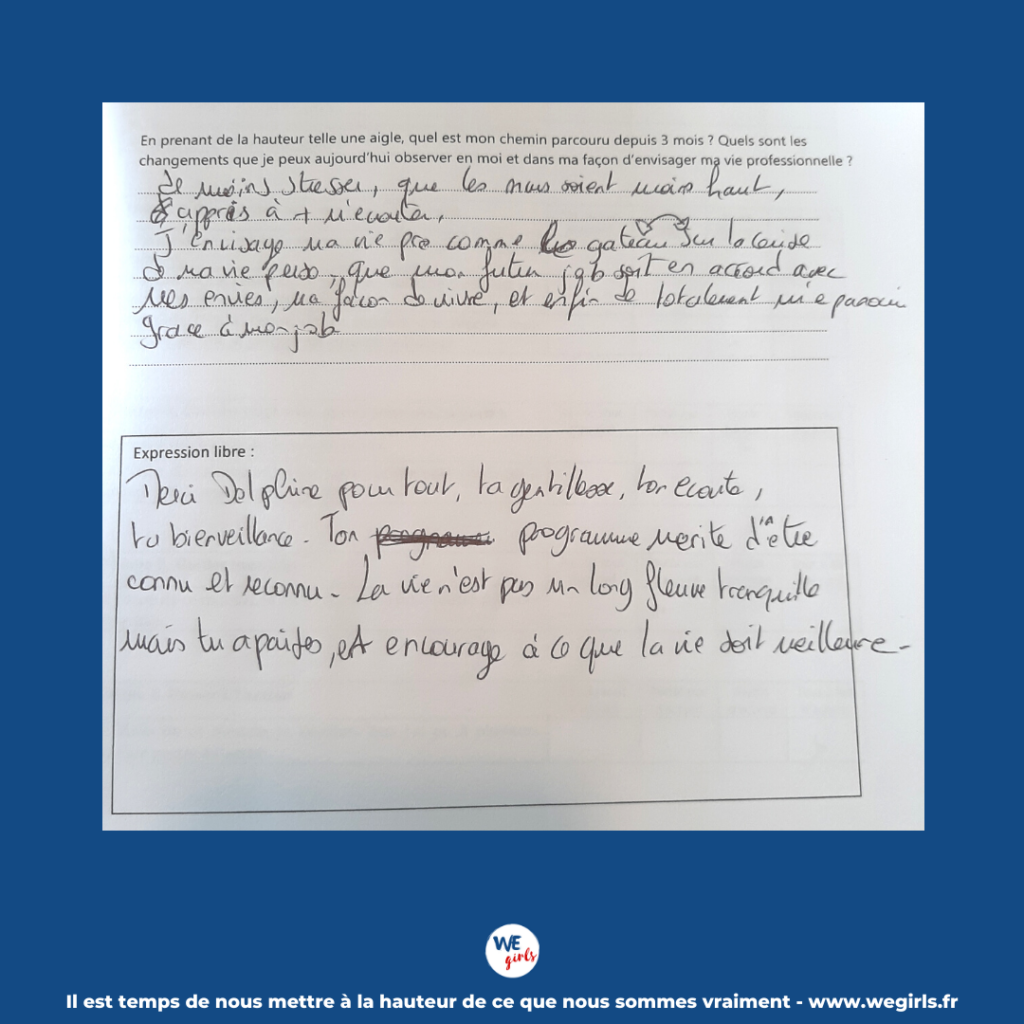 En prenant de la hauteur telle une aigle, quel est mon chemin parcouru depuis 3 mois ? Quels sont les
changements que je peux aujourd'hui observer en moi et dans ma façon d'envisager ma vie professionnelle ?
de moins stresser, que les murs soient moins haut,
appris à + m'écouter,
J'envisage ma vie pro comme gateau sur la cerise
de ma vie perso, que mon futur job soit en accord avec
mes envies, ma façon de vivre, et enfin de totalement m'epanouir
grace à mon job
Expression libre :
Merci Delphine pour tout, ta gentillesse, ton ecoute,
ta bienveillance. Ton programme merite d'être
connu et reconnu. La vie n'est pas un long fleuve tranquille
mais tu apaises, et encourage à ce que la vie soit meilleure.
WE
girls
Il est temps de nous mettre à la hauteur de ce que nous sommes vraiment - www.wegirls.fr